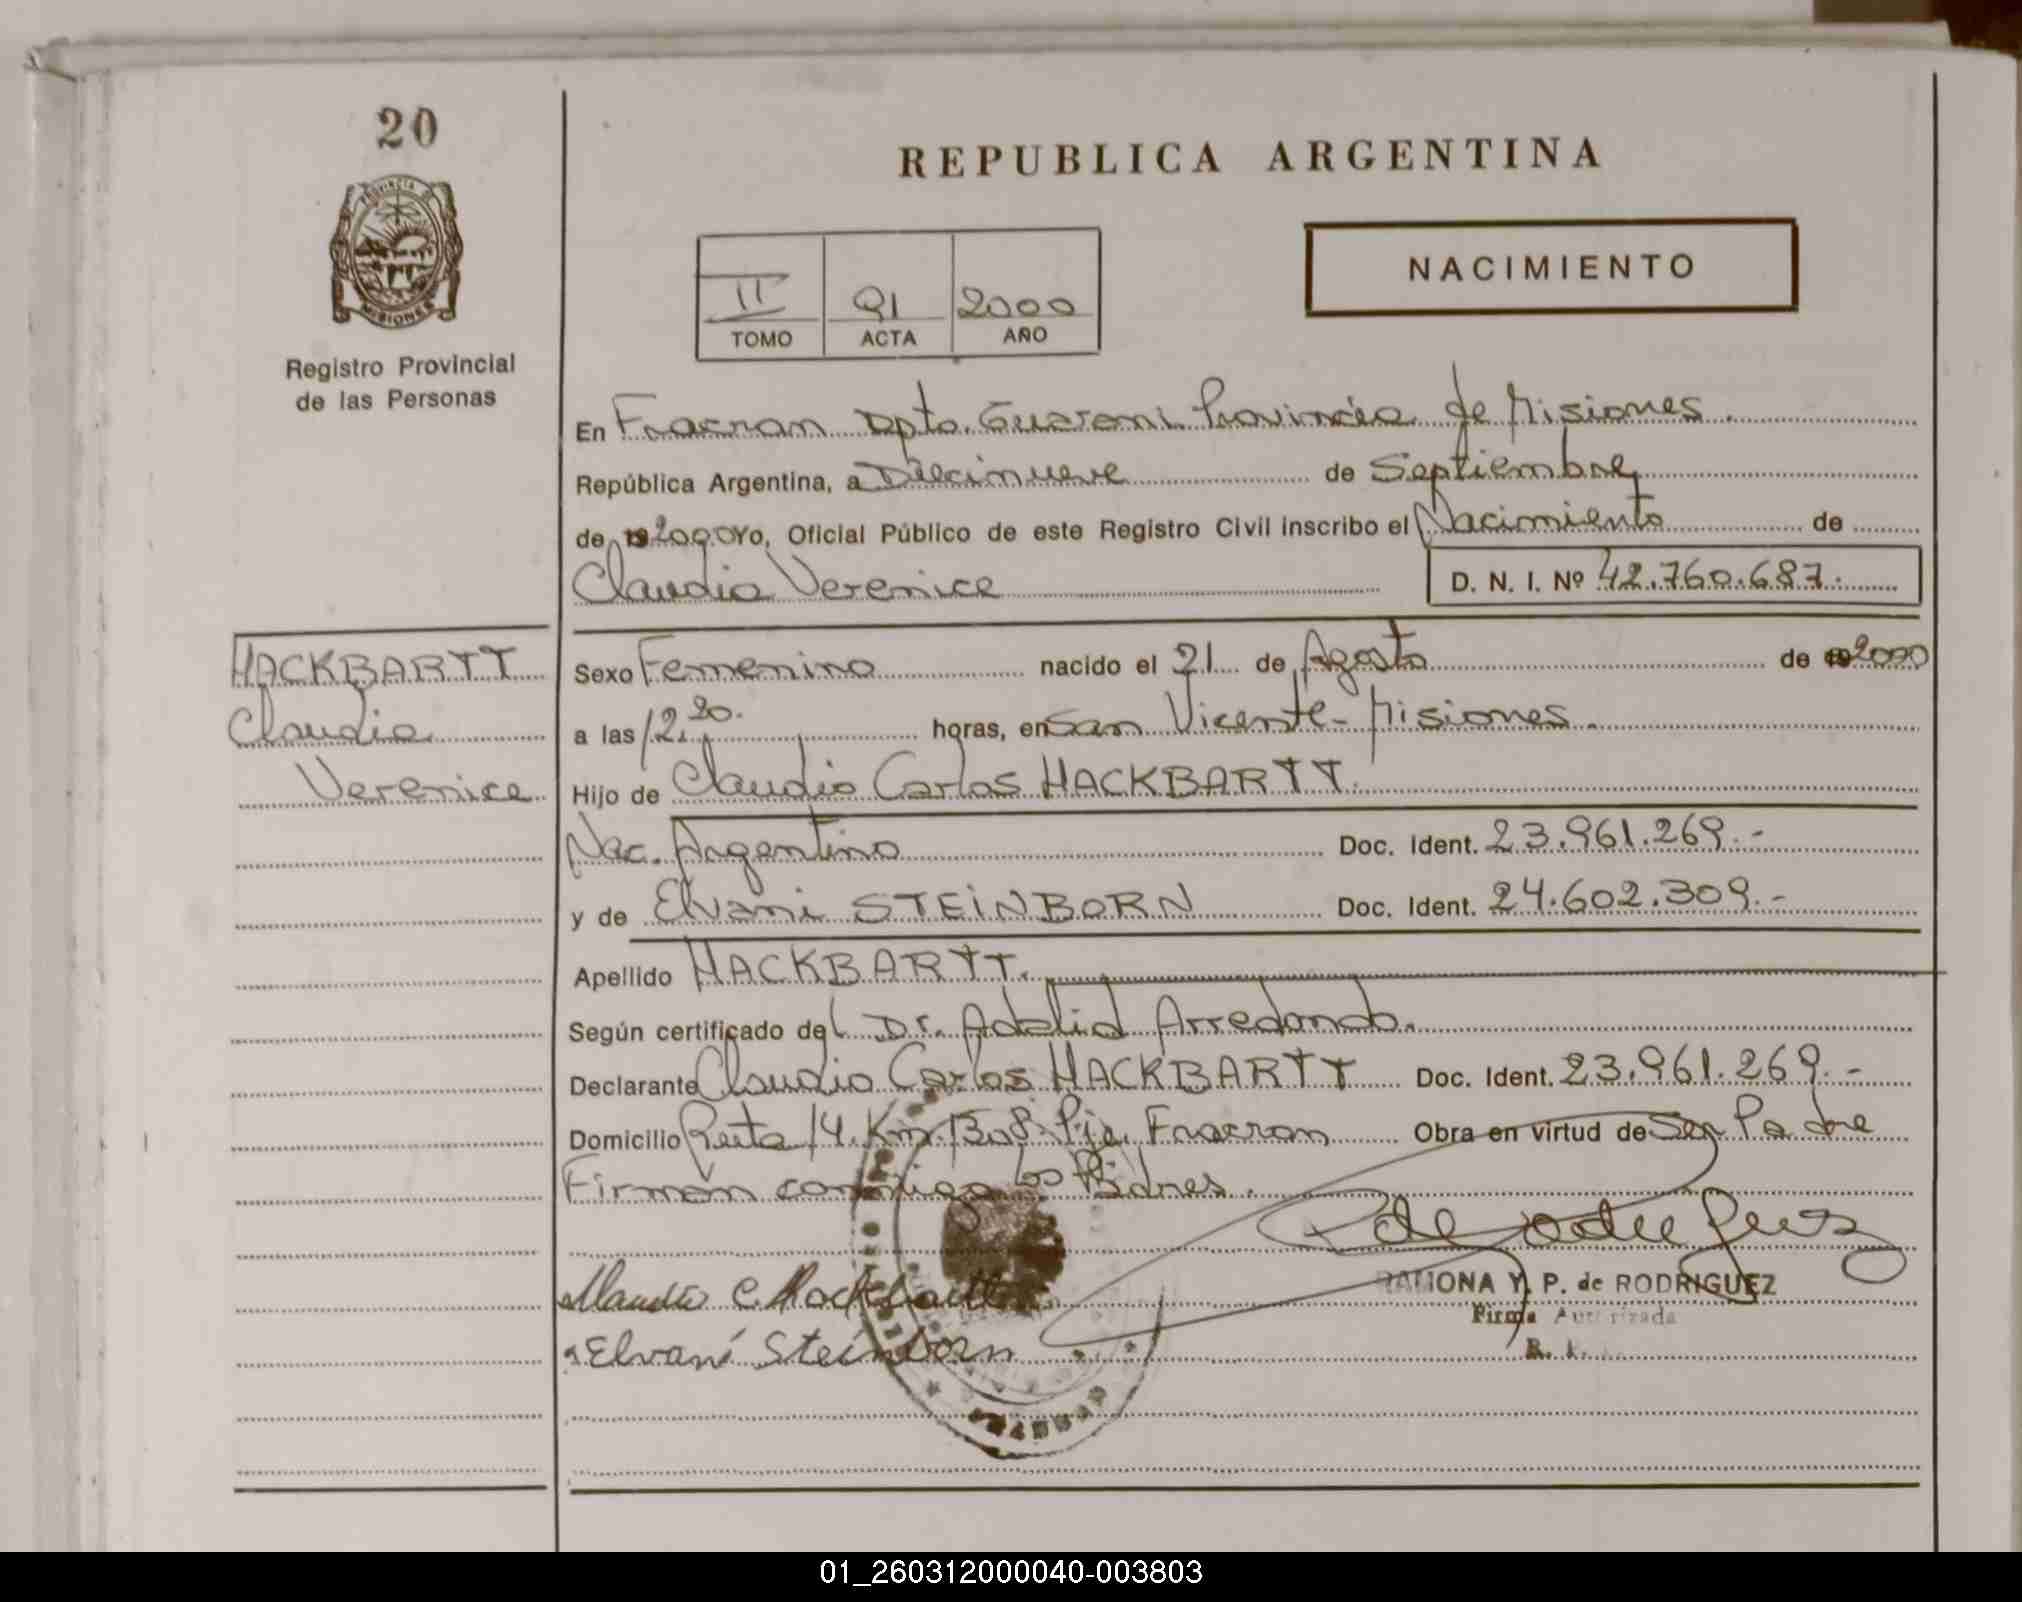 20
REPUBLICA ARGENTINA
PROVINCIA D
MISIONES
NACIMIENTO
II 91 2000
TOMO ACTA AÑO
Registro Provincial
de las Personas
En Fracran Dpto. Guarani Provincia de Misiones.
República Argentina, a Diecinueve de Septiembre
de 19 2000 Yo, Oficial Público de este Registro Civil inscribo el Nacimiento de
Claudia Verenice D. N. I. Nº 42.760.687.
HACKBARTT
Claudia
Verenice
Sexo Femenino nacido el 21 de Agosto de 19 2000
a las 12,20. horas, en San Vicente - Misiones.
Hijo de Claudio Carlos HACKBARTT.
Nac. Argentino Doc. Ident. 23.961.269.-
y de Elvani STEINBORN Doc. Ident. 24.602.309.-
Apellido HACKBARTT.
Según certificado del Dr. Adalid Arredondo.
Declarante Claudio Carlos HACKBARTT Doc. Ident. 23.961.269.-
Domicilio Ruta 14. Km. Pje. Fracran Obra en virtud de Ser Padre
Firman conmigo los Padres.
Claudio C. Hackbartt
Elvani Steinborn
RAMONA Y. P. de RODRIGUEZ
Firma Autorizada
01_260312000040-003803